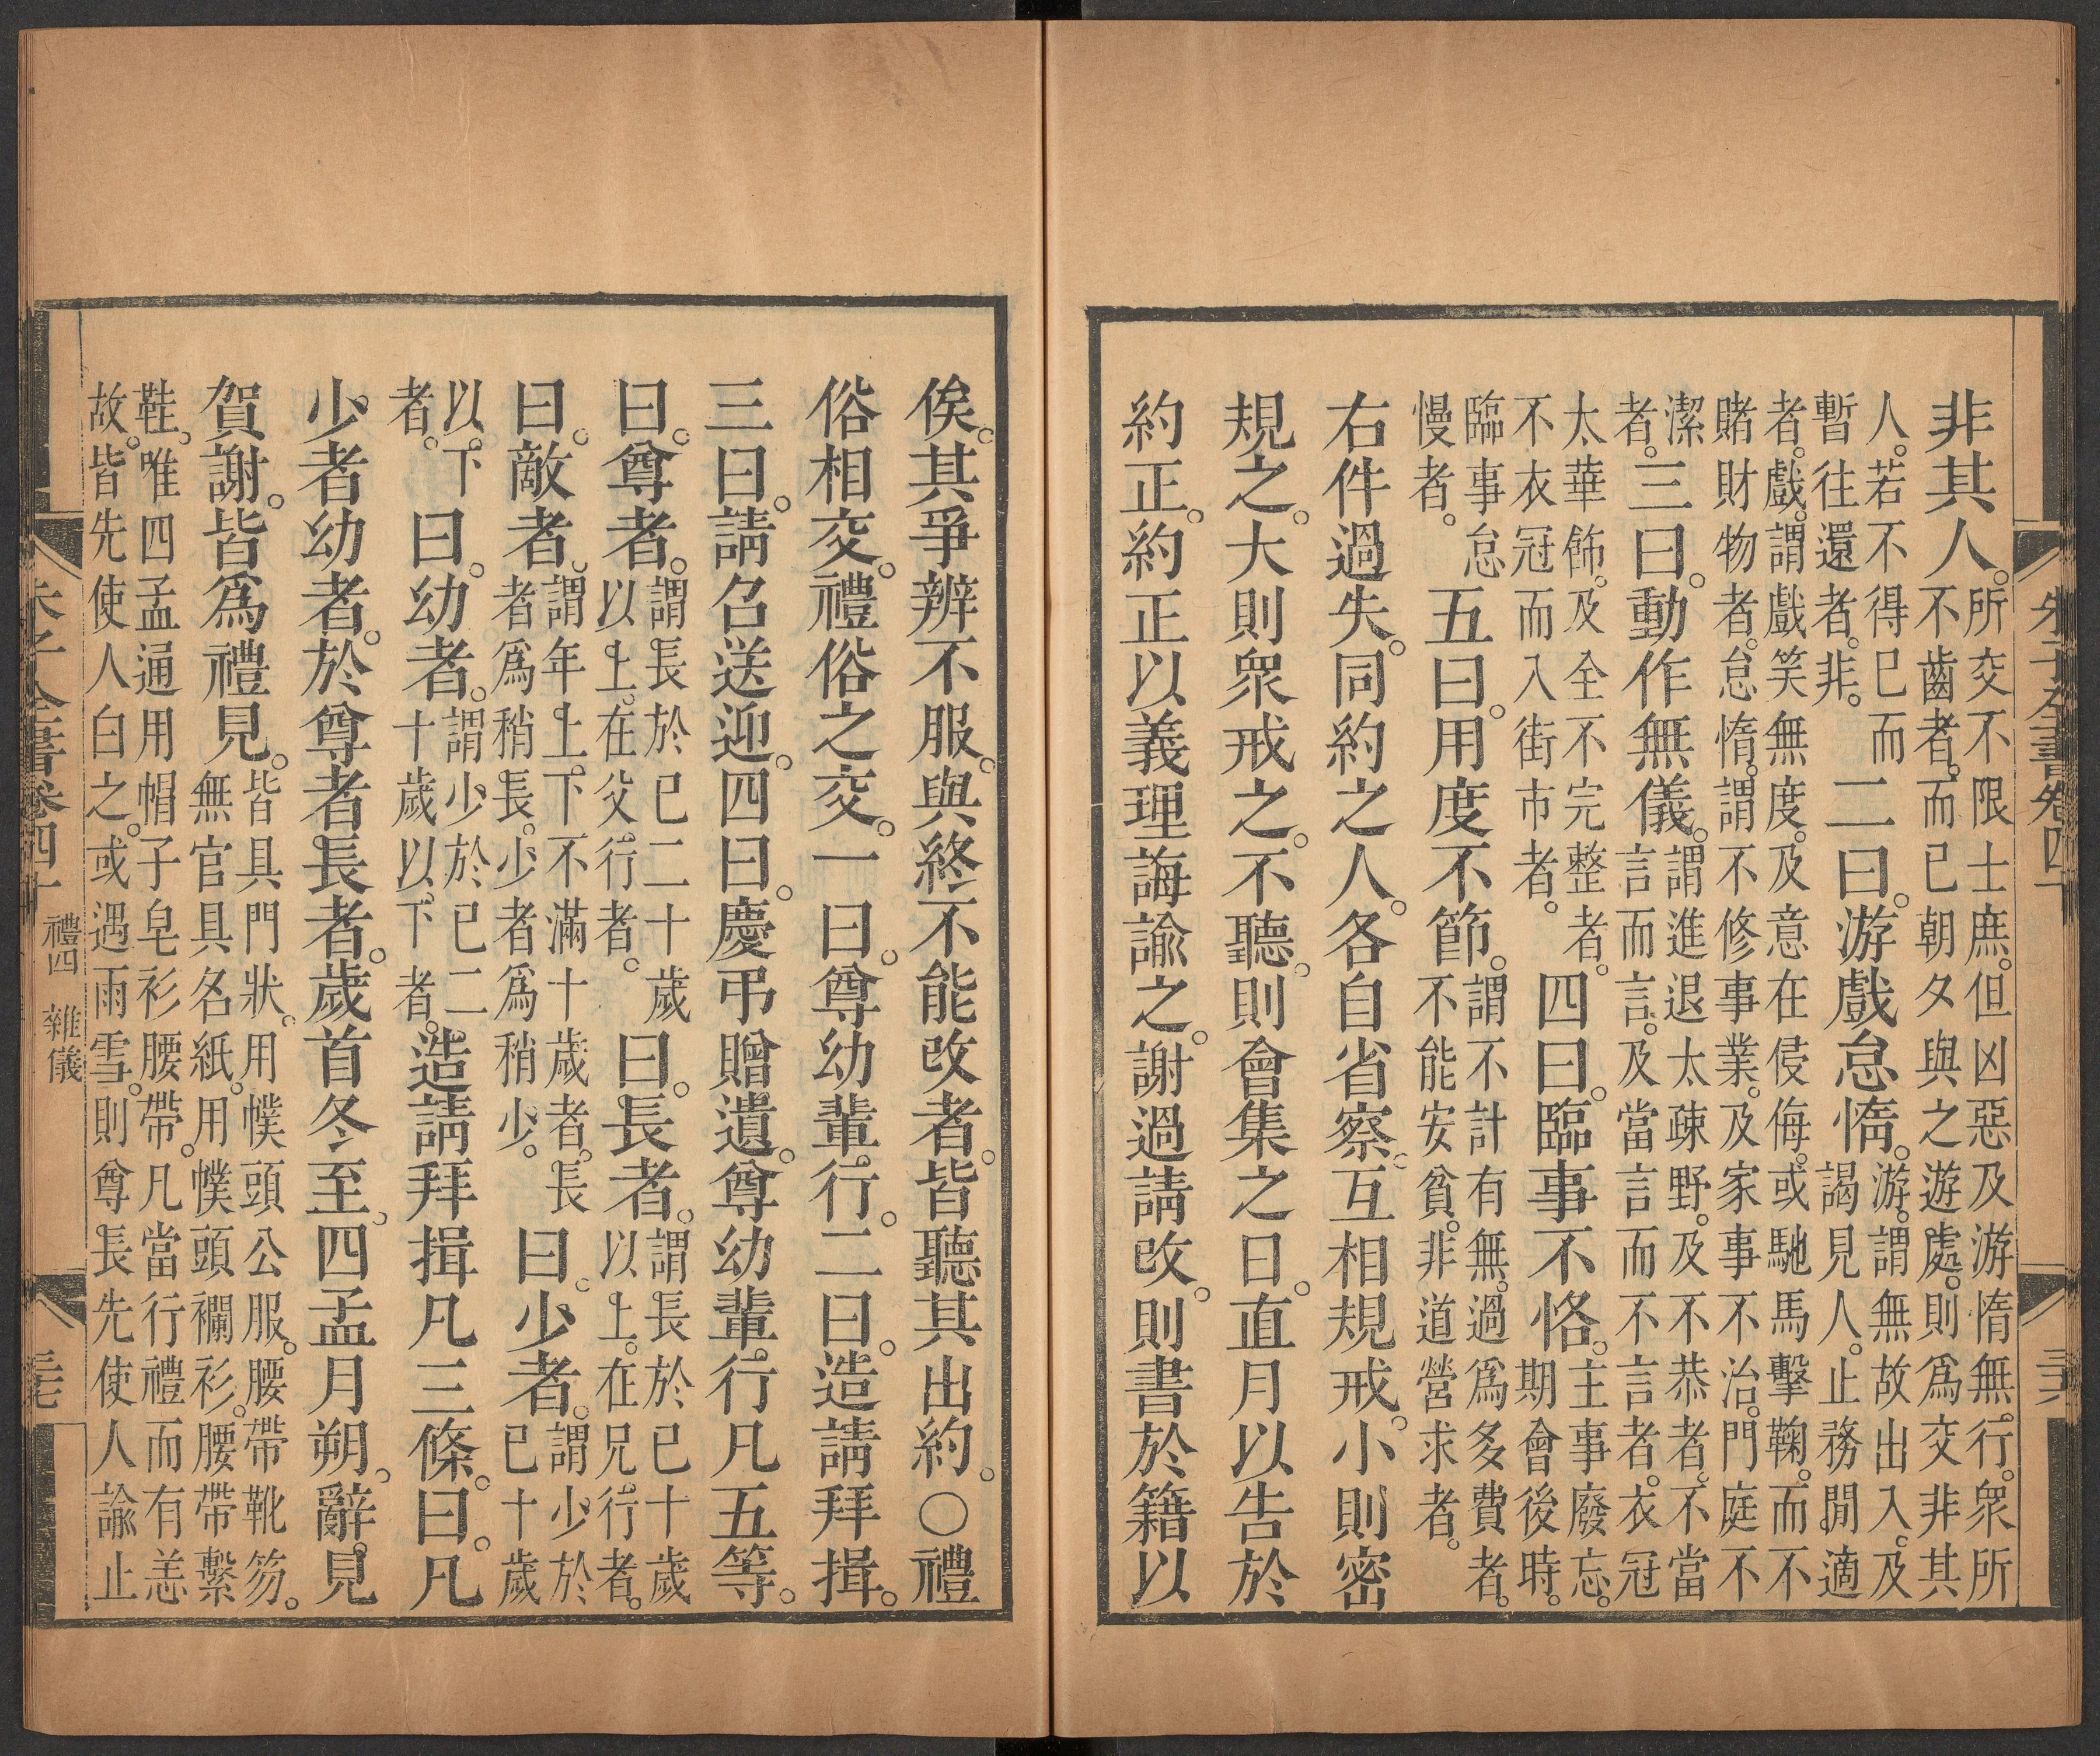 朱子全書卷四十
三十六
非其人。所交不限士庶。但凶惡及游惰無行。衆所不齒者。而已朝夕與之遊處。則爲交非其
人。若不得已而暫往還者。非。二曰。游戲怠惰。游。謂無故出入。及謁見人。止務閒適
者。戲。謂戲笑無度。及意在侵侮。或馳馬擊鞠。而不賭財物者。怠惰。謂不修事業。及家事不治。門庭不
潔者。三曰。動作無儀。謂進退太疎野。及不恭者。不當言而言。及當言而不言者。衣冠
太華飾。及全不完整者。不衣冠而入街市者。四曰。臨事不恪。主事廢忘。期會後時。
臨事怠慢者。五曰。用度不節。謂不計有無。過爲多費者。不能安貧。非道營求者。
右件過失。同約之人。各自省察。互相規戒。小則密
規之。大則衆戒之。不聽。則會集之日。直月以告於
約正。約正以義理誨諭之。謝過請改。則書於籍以
俟。其爭辨不服。與終不能改者。皆聽其出約。○禮
俗相交。禮俗之交。一曰。尊幼輩行。二曰。造請拜揖。
三曰。請召送迎。四曰。慶弔贈遺。尊幼輩行凡五等。
曰。尊者。謂長於已二十歲以上。在父行者。曰。長者。謂長於已十歲以上。在兄行者。
曰。敵者。謂年上下不滿十歲者。長者爲稍長。少者爲稍少。曰。少者。謂少於已十歲
以下者。曰。幼者。謂少於已二十歲以下者。造請拜揖凡三條。曰。凡
少者幼者。於尊者長者。歲首冬至。四孟月朔。辭見
賀謝。皆爲禮見。皆具門狀。用幞頭公服。腰帶靴笏。無官具名紙。用幞頭襴衫。腰帶繫
鞋。唯四孟通用帽子皂衫腰帶。凡當行禮而有恙故。皆先使人白之。或遇雨雪。則尊長先使人諭止
朱子全書卷四十
禮四 雜儀
三十七